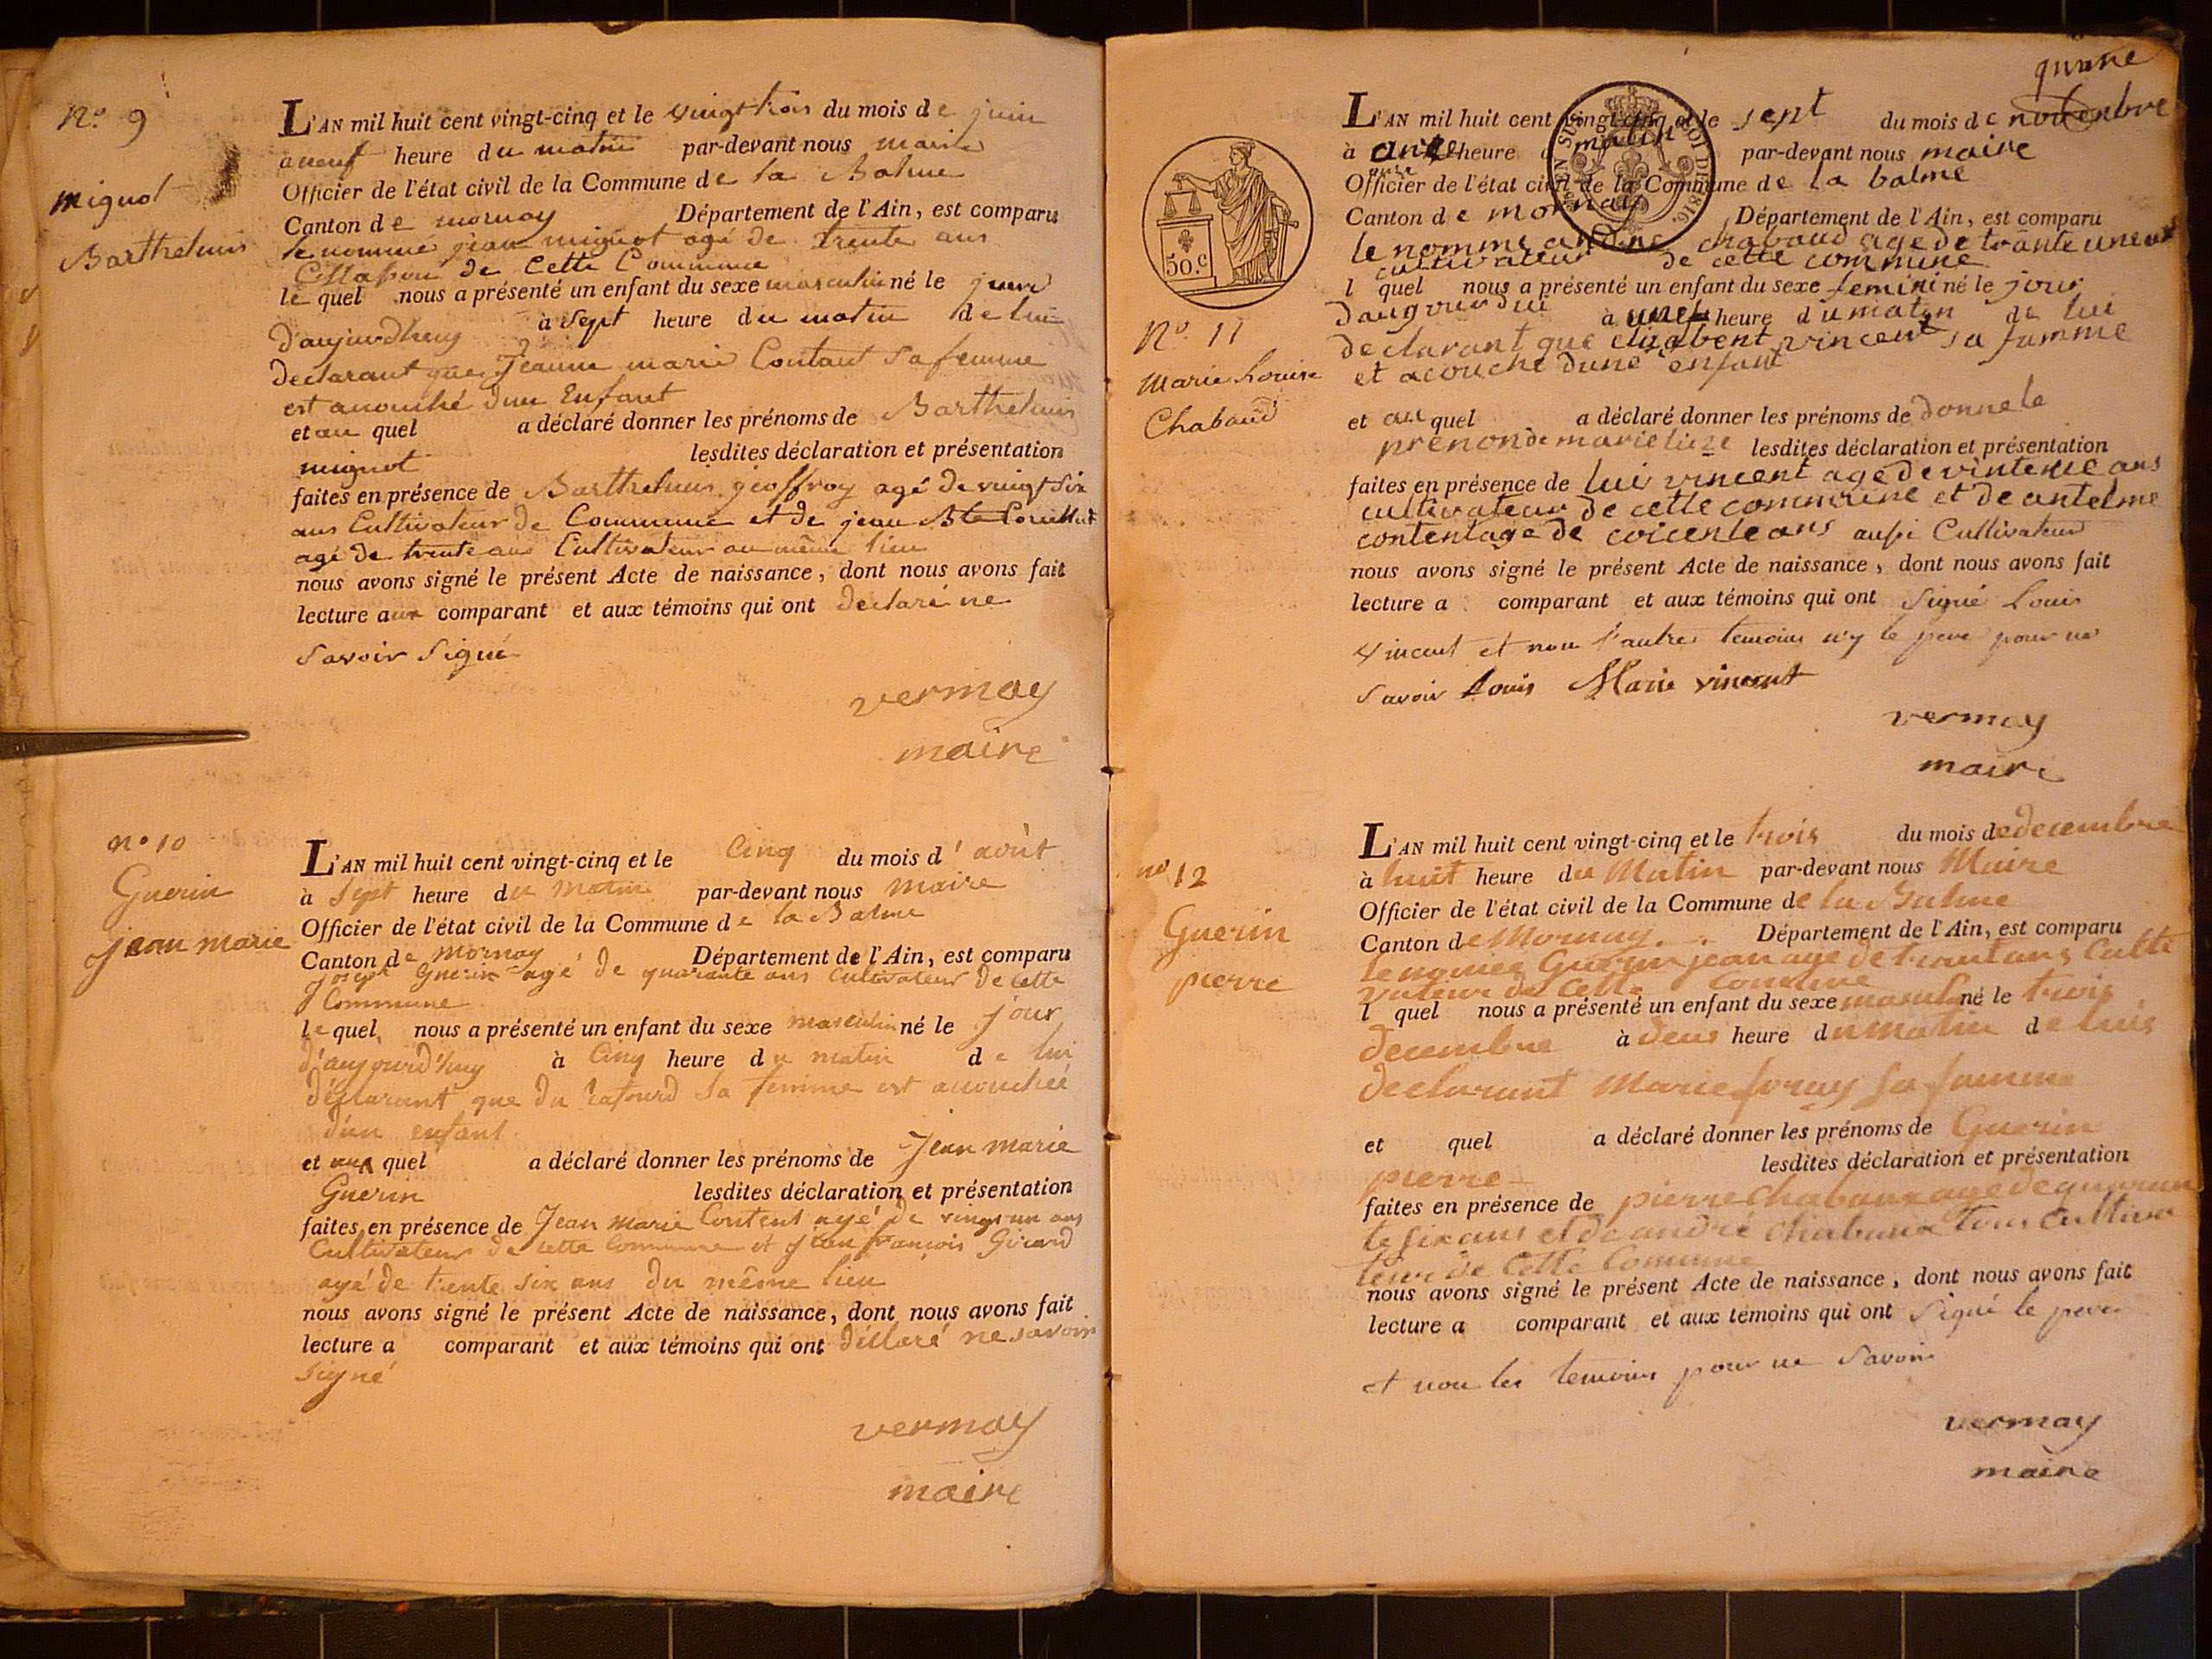 N.o 9
mignot
Barthelmis
L'AN mil huit cent vingt-cinq et le vingt trois du mois de juin
a neuf heure du matin par-devant nous maire
Officier de l'état civil de la Commune de la Balme
Canton de mornay Département de l'Ain, est comparu
le nommé jean mignot agé de trente ans
de Cette Commune
le quel nous a présenté un enfant du sexe masculin né le
d'aujourdhuy à sept heure du matin de lui
declarant que Jeanne marie Contant sa femme
est accouché d'un Enfant
et au quel a déclaré donner les prénoms de Barthelmis
mignot lesdites déclaration et présentation
faites en présence de Barthelmis geoffroy agé de vingt six
ans Cultivateur de Commune et de jean Bte
agé de trente ans Cultivateur au même lieu
nous avons signé le présent Acte de naissance, dont nous avons fait
lecture aux comparant et aux témoins qui ont declaré ne
savoir signé
vermay
maire
n° 10
Guerin
jean marie
L'AN mil huit cent vingt-cinq et le Cinq du mois d'août
à sept heure du matin par-devant nous maire
Officier de l'état civil de la Commune de la Balme
Canton de mornay Département de l'Ain, est comparu
joseph Guerin agé de quarante ans Cultivateur de cette
Commune
le quel nous a présenté un enfant du sexe masculin né le jour
d'aujourd'huy à Cinq heure du matin de lui
déclarant que du rafourd sa femme est accouchée
d'un enfant
et aux quel a déclaré donner les prénoms de Jean marie
Guerin lesdites déclaration et présentation
faites en présence de Jean marie Content agé de vingt un ans
Cultivateur de cette Commune et jean françois Girard
agé de trente six ans du même lieu
nous avons signé le présent Acte de naissance, dont nous avons fait
lecture a comparant et aux témoins qui ont déclaré ne savoir
signé
vermay
maire
50.c
N.o 11
Marie Louise
Chabaud
L'AN mil huit cent vingt-cinq et le sept du mois de novenbre
à heure matin par-devant nous maire
Officier de l'état civil de la Commune de la balme
Canton de mornay Département de l'Ain, est comparu
le nomme chabaud age de trante un ans
cultivateur de cette commune
l quel nous a présenté un enfant du sexe feminin né le jour
à heure du maten de lui
declarant que vincent sa famme
et acouche dune enfant
et au quel a déclaré donner les prénoms de donne le
prenon de marie lieze lesdites déclaration et présentation
faites en présence de lui vincent age de ans
cultivateur de cette commune et de antelme
content age de ans aussi Cultivateur
nous avons signé le présent Acte de naissance, dont nous avons fait
lecture a comparant et aux témoins qui ont signé Louis
vincent et non l'autre temoins n'y le pere pour ne
savoir Louis Marie vincent
vermay
maire
n° 12
Guerin
pierre
L'AN mil huit cent vingt-cinq et le trois du mois de decembre
à huit heure du Matin par-devant nous Maire
Officier de l'état civil de la Commune de la Balme
Canton de Mornay. Département de l'Ain, est comparu
le Guerin jean age de trant ans Culti
vateur de Cette Comune
l quel nous a présenté un enfant du sexe né le trois
decembre à deus heure du matin de luis
declarant Marie foray sa famme
et quel a déclaré donner les prénoms de Guerin
pierre lesdites déclaration et présentation
faites en présence de pierre Chabaux age de quaran
te six ans et de andré Chabaux tous Cultiva
teur de Cette Commune
nous avons signé le présent Acte de naissance, dont nous avons fait
lecture a comparant et aux témoins qui ont signé le pere
et non les temoins pour ne savoir
vermay
maire